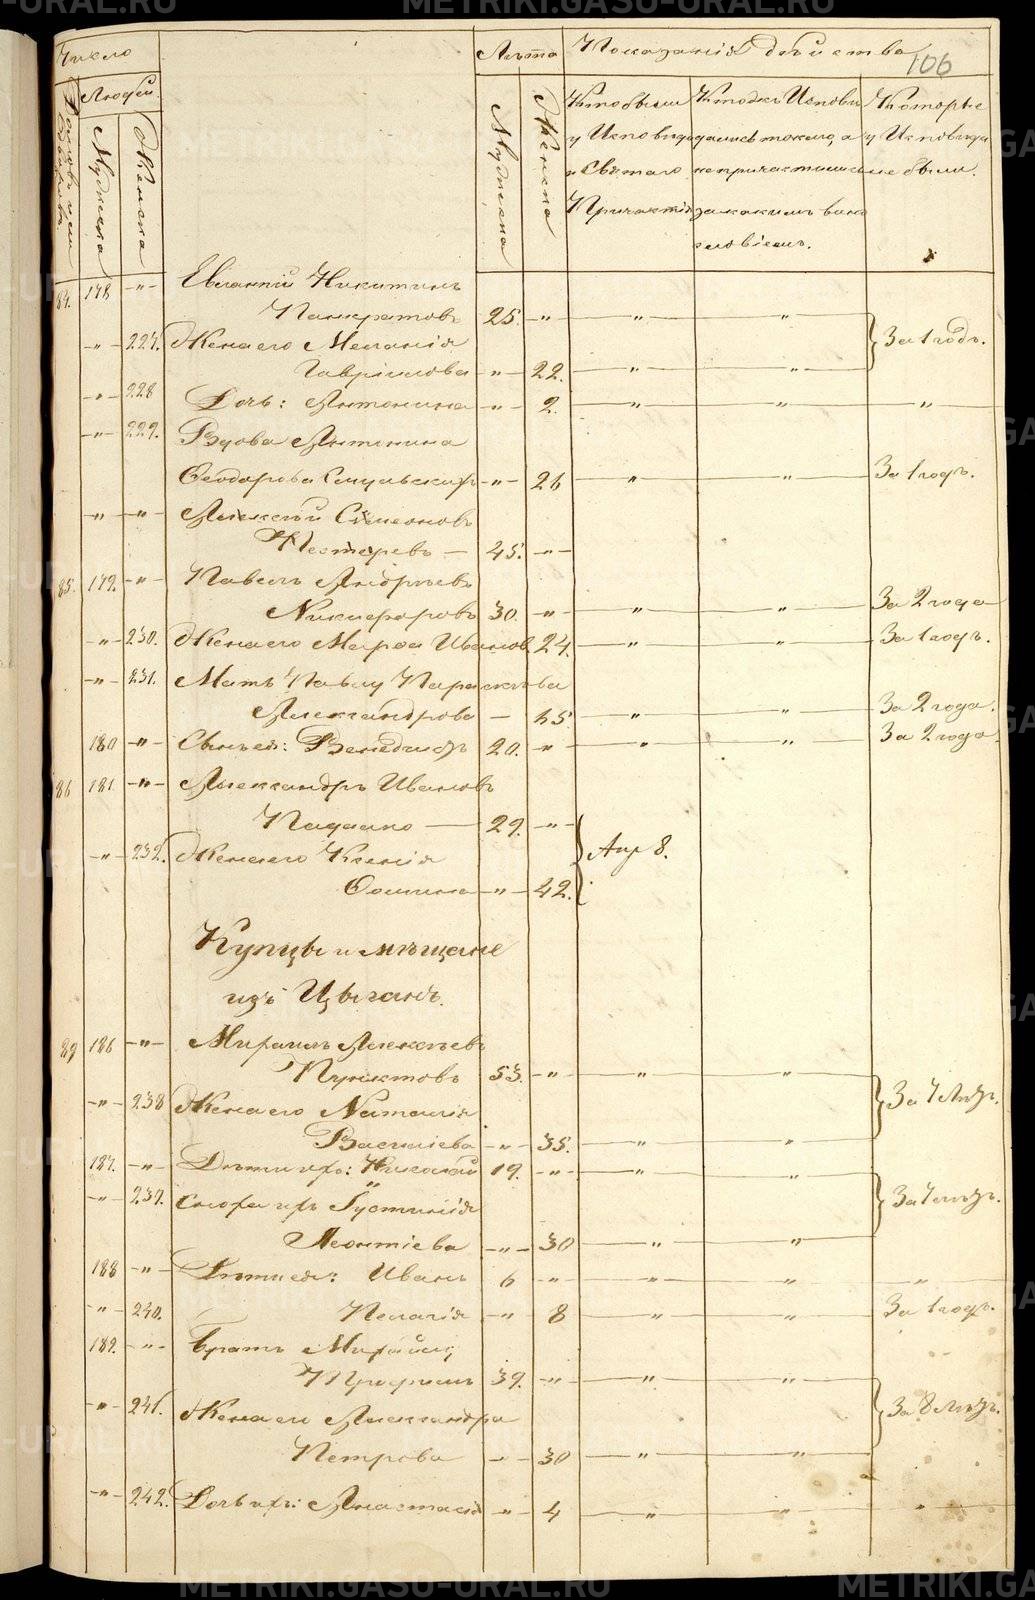 Число
Лѣта
Показанія дѣйства
106
Людей.
Мужеска
Женска
Мужеска
Женска
Кто были у Исповѣди и Святаго Причастія
Кто исповѣдались токмо, а не причастились и за какимъ винословіемъ.
Которые у Исповѣди не были.
84. 178 -"- Евлампій Никитинъ
Панкратовъ 25. -"- " "
-"- 227. Жена его Меланія
За 1 годъ.
Гаврилова -"- 22. " "
-"- 228 Дочь: Антонина -"- 2. " " "
-"- 229. Вдова Антонина
Ѳеодорова -"- 26 " " За 1 годъ.
-"- -"- Алексѣй Симеоновъ
Нестеревъ — 45. -"-
85. 179. -"- Павелъ Андрѣевъ
Никифоровъ 30. -"- " " За 2 года
" 230. Жена его Марѳа Иванов. 24. " " За 1 годъ.
-"- 231. Мать Павлу Параскева
Александрова — 45 " " За 2 года.
180 -"- Сынъ ея: Венедиктъ 20. -"- " " За 2 года.
86 181 -"- Александръ Ивановъ
29. -"-
-"- 232. Жена его Ксенія
Апр 8.
Ѳомина -"- 42.
Купцы и мѣщане
изъ Цыганъ.
89 186 -"- Михаилъ Алексѣевъ
Пунктовъ 53. -"- " "
-"- 238 Жена его Наталія
За 7 лѣтъ.
Василіева -"- 35. " "
187. -"- Дѣти ихъ: Николай 19. -"- " "
-"- 239. Сноха ихъ Іустинія
За 7 лѣтъ.
Леонтіева -"- 30 " "
188 -"- Дѣти ея: Иванъ 6 -"- " " "
-"- 240. Пелагія -"- 8 " " За 1 годъ.
189. -"- Братъ Михаилу
Трофимъ 39. -"- " "
" 241. Жена его Александра
За 8 лѣтъ.
Петрова -"- 30 " "
-"- 242. Дочь ихъ: Анастасія -"- 4 " " "
METRIKI.GASO-URAL.RU